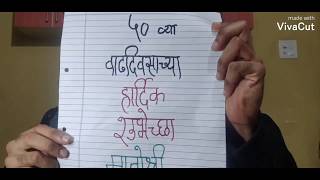 made with
VivaCut
५० व्या
वाढदिवसाच्या
हार्दिक
शुभेच्छा